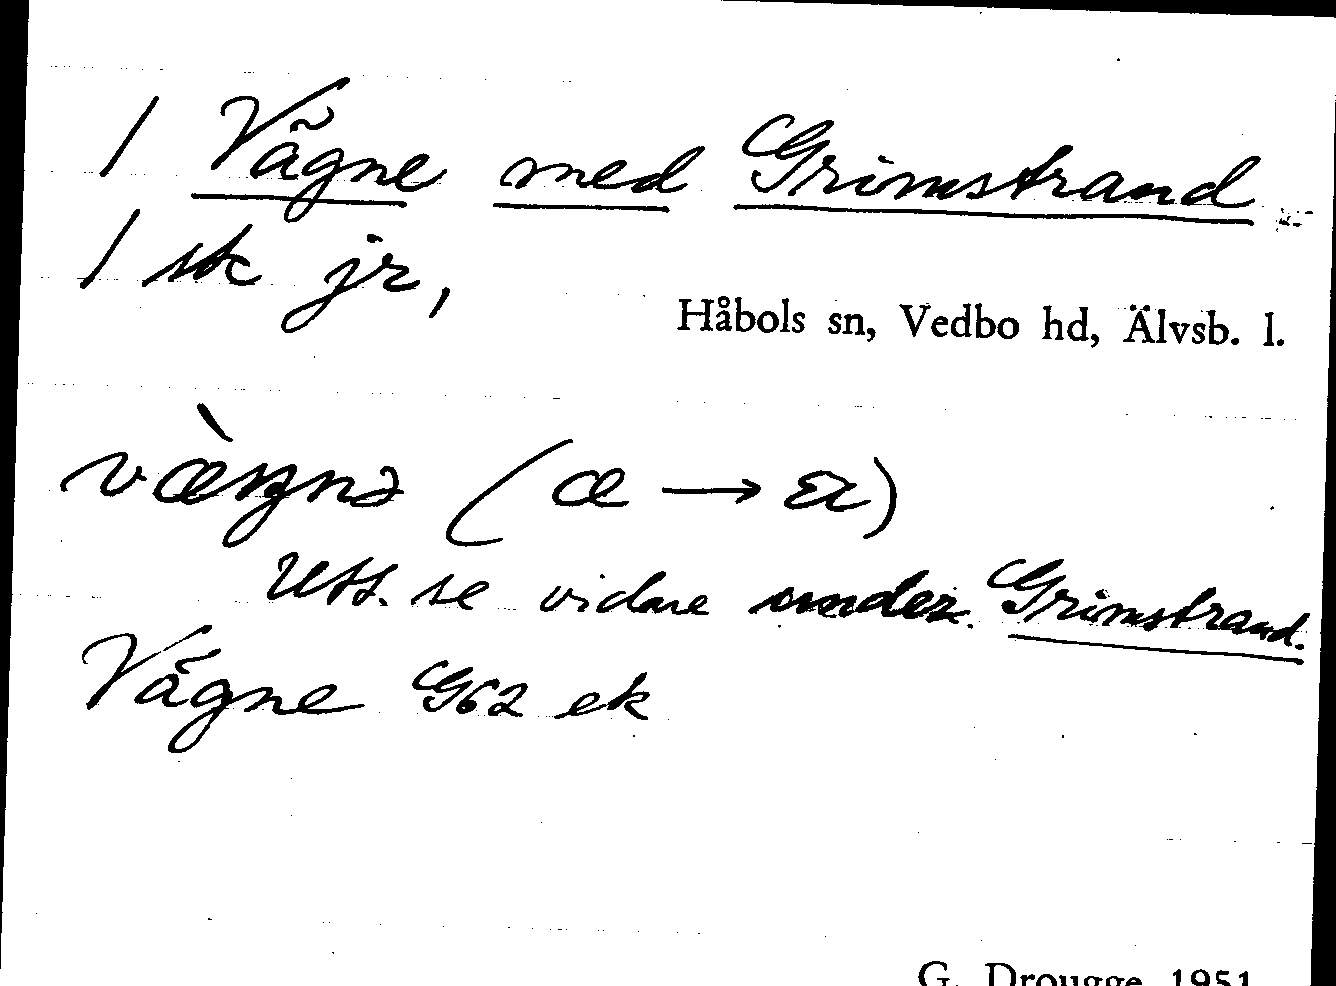 1 Vägne med Grimstrand
1 sk jr,
Håbols sn, Vedbo hd, Älvsb. l.
væ̀ŋnə (æ → a)
Utt. se vidare under Grimstrand.
Vägne G62 ek
G. Drougge 1951